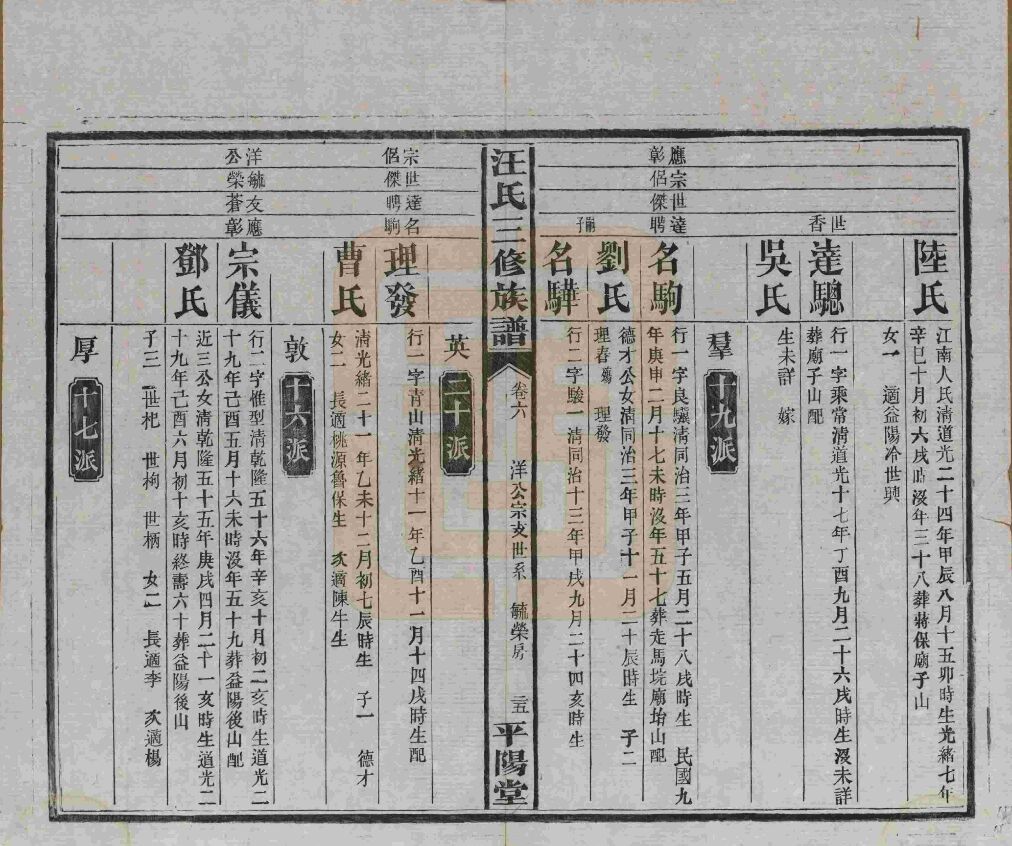 陸氏
江南人氏清道光二十四年甲辰八月十五卯時生光緒七年
辛巳十月初六戌時沒年三十八葬蔣保廟子山
女一　適益陽冷世興
世香
達驄
行一字乘常清道光十七年丁酉九月二十六戌時生沒未詳
葬廟子山配
吳氏
生未詳　嫁
羣　十九派
應宗世達
彰侶傑聘
名駒
行一字良驥清同治三年甲子五月二十八戌時生　民國九
年庚申二月十七未時沒年五十七葬走馬垸廟堉山配
劉氏
德才公女清同治三年甲子十一月二十辰時生　子二
理春殤　理發
名驊
行二字駿一清同治十三年甲戌九月二十四亥時生
汪氏三修族譜　卷六　洋公宗支世系　毓榮房　三五　平陽堂
英　二十派
宗世達名
侶傑聘駒
理發
行一字青山清光緒十一年乙酉十一月十四戌時生配
曹氏
清光緒二十一年乙未十二月初七辰時生　子一　德才
女二　長適桃源魯保生　次適陳牛生
敦　十六派
洋毓友應
公榮蒼彰
宗儀
行二字惟型清乾隆五十六年辛亥十月初二亥時生道光二
十九年己酉五月十六未時沒年五十九葬益陽後山配
鄧氏
近三公女清乾隆五十五年庚戌四月二十一亥時生道光二
十九年己酉六月初十亥時終壽六十葬益陽後山
子三　世杞　世栒　世柄　女二　長適李　次適楊
厚　十七派